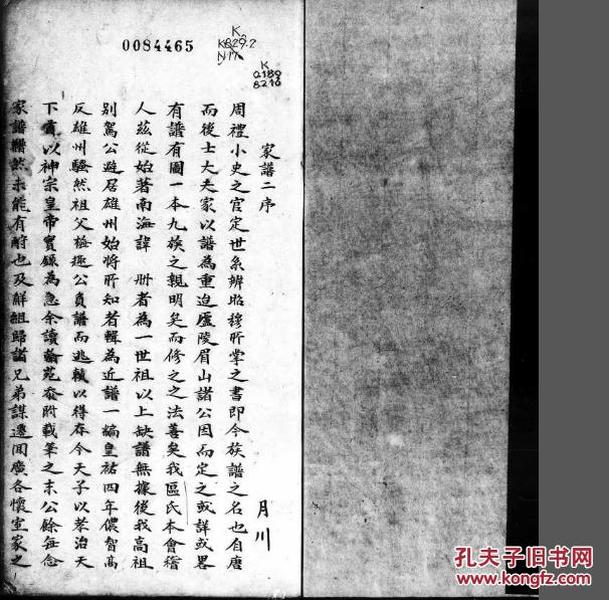 0084465
K
K829.2
N17
K
0189
8210
家譜二序
月川
周禮小史之官定世系辨昭穆所掌之書即今族譜之名也自唐
而後士大夫家以譜為重迨廬陵眉山諸公因而定之或詳或畧
有譜有圖一本九族之親明矣而修之之法善矣我區氏本會稽
人茲從始著南海諱 冊者為一世祖以上缺譜無據後我高祖
別駕公避居雄州始將所知者輯為近譜一編皇祐四年儂智高
反雄州騷然祖父 公負譜而逃 以得存今天子以孝治天
下 以神宗皇帝實錄為急余讀 苑 附載筆之末公餘每念
家譜 然未能有所也及解組歸諸兄弟謀遷聞廣各懷室家之
孔夫子旧书网
www.kongfz.com